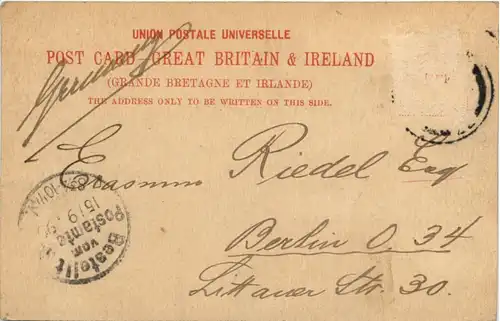 UNION POSTALE UNIVERSELLE
POST CARD - GREAT BRITAIN & IRELAND
(GRANDE BRETAGNE ET IRLANDE)
THE ADDRESS ONLY TO BE WRITTEN ON THIS SIDE.
Germany
Erasmus Riedel Esq
Berlin O. 34
Littauer Str. 30.
Bestellt
vom
Postamte